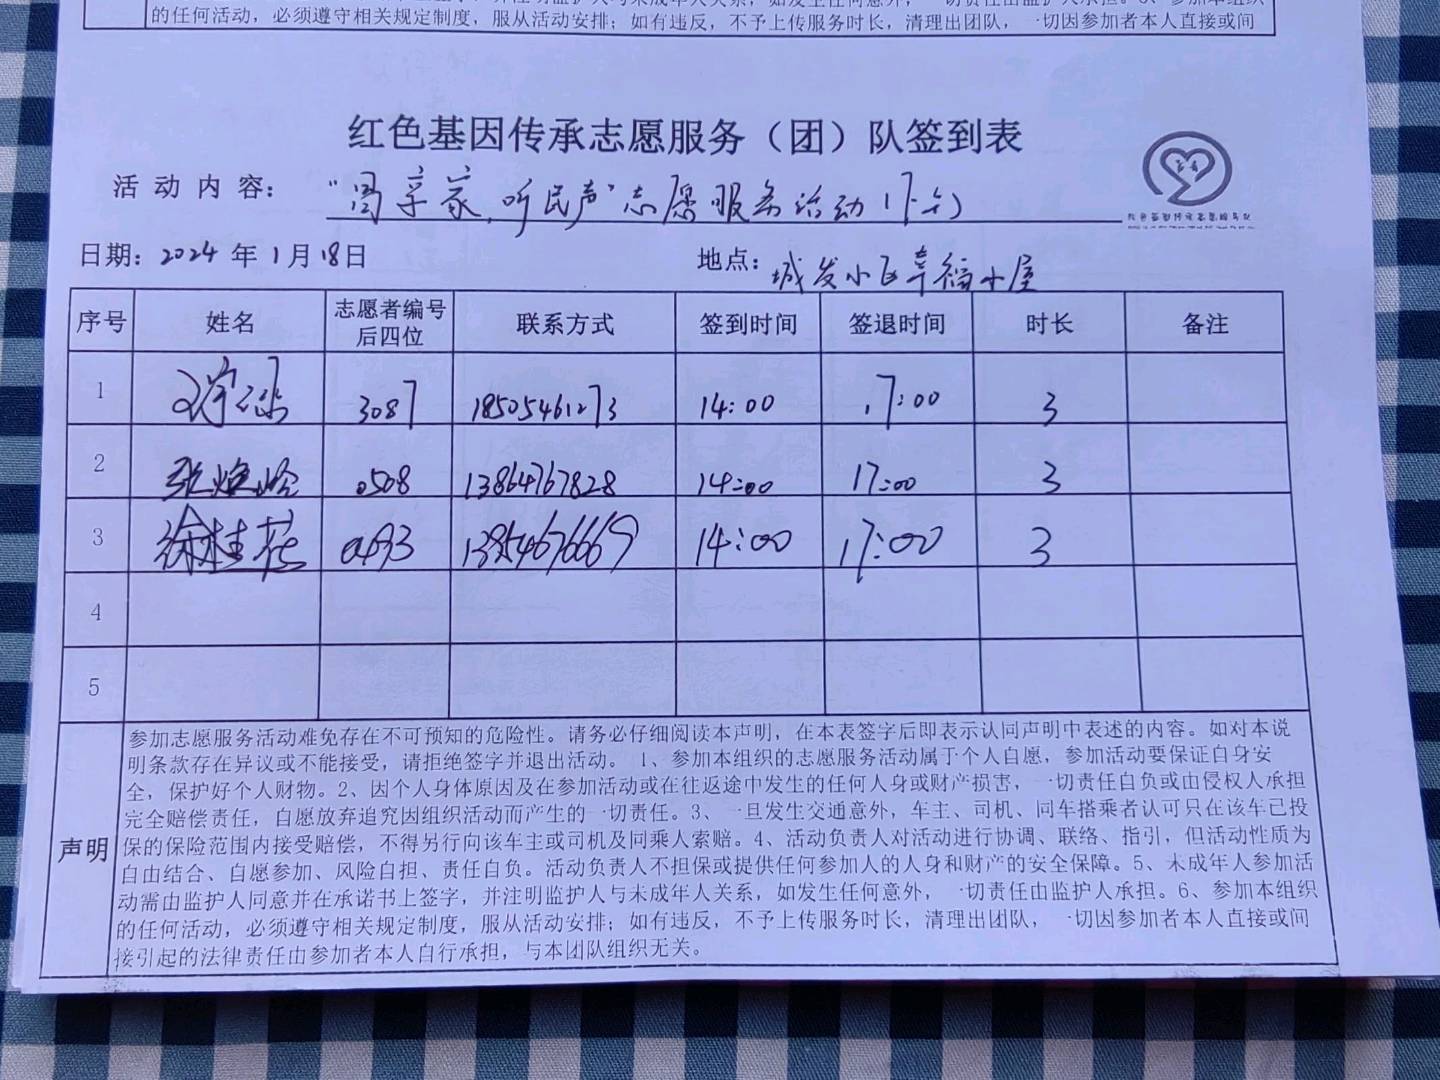 的任何活动，必须遵守相关规定制度，服从活动安排；如有违反，不予上传服务时长，清理出团队，一切因参加者本人直接或间
红色基因传承志愿服务（团）队签到表
活动内容： 听民声”志愿服务活动
日期：2024年1月18日 地点：城发小区幸福小屋
序号 姓名 志愿者编号后四位 联系方式 签到时间 签退时间 时长 备注
1 3087 18505461273 14:00 17:00 3
2 0508 13864767828 14:00 17:00 3
3 徐桂花 0493 13954676669 14:00 17:00 3
4
5
声明
参加志愿服务活动难免存在不可预知的危险性。请务必仔细阅读本声明，在本表签字后即表示认同声明中表述的内容。如对本说
明条款存在异议或不能接受，请拒绝签字并退出活动。 1、参加本组织的志愿服务活动属于个人自愿，参加活动要保证自身安
全，保护好个人财物。2、因个人身体原因及在参加活动或在往返途中发生的任何人身或财产损害，一切责任自负或由侵权人承担
完全赔偿责任，自愿放弃追究因组织活动而产生的一切责任。3、一旦发生交通意外，车主、司机、同车搭乘者认可只在该车已投
保的保险范围内接受赔偿，不得另行向该车主或司机及同乘人索赔。4、活动负责人对活动进行协调、联络、指引，但活动性质为
自由结合、自愿参加、风险自担、责任自负。活动负责人不担保或提供任何参加人的人身和财产的安全保障。5、未成年人参加活
动需由监护人同意并在承诺书上签字，并注明监护人与未成年人关系，如发生任何意外，一切责任由监护人承担。6、参加本组织
的任何活动，必须遵守相关规定制度，服从活动安排；如有违反，不予上传服务时长，清理出团队，一切因参加者本人直接或间
接引起的法律责任由参加者本人自行承担，与本团队组织无关。